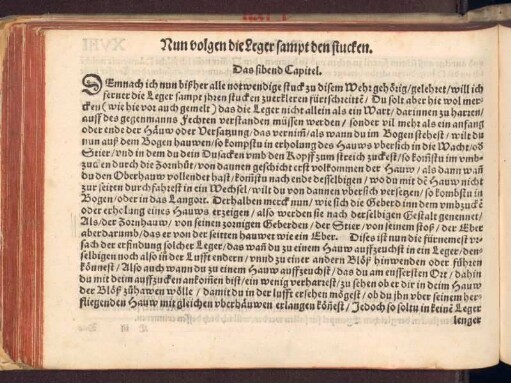 Nun volgen die Leger sampt den stucken.
Das sibend Capitel.
DEmnach ich nun bißher alle notwendige stuck zu disem Wehr gehörig/gelehret/will ich
ferner die Leger sampt ihren stucken zuerkleren fürschreittē/ Du solt aber hie wol mer-
cken (wie hie vor auch gemelt) das die Leger nicht allein als ein Wart/ darinnen zu harren/
auff des gegenmanns Fechten verstanden müssen werden/ sonder vil mehr als ein anfang
oder ende der Häuw oder Versatzung/ das vernim̄/ als wann du im Bogen stehest/ wilt du
nun auß dem Bogen hauwen/ so kompstu in erholung des Hauws vbersich in die Wacht/ oð
Stier/ vnd in dem du dein Dusacken vmb den Kopff zum streich zuckest/ so kom̄stu im vmb-
zucken durch die Zornhůt/ von dannen geschicht erst volkommen der Hauw/ als dann wañ
du den Oberhauw vollendet hast/ kom̄stu nach ende desselbigen/ wo du mit dē Hauw nicht
zur seiten durchfahrest in ein Wechsel/ wilt du von dannen vbersich versetzen/ so kombstu in
Bogen/ oder in das Langort. Derhalben merck nun/ wie sich die Geberd inn dem vmbzuckē
oder erholung eines Hauws erzeigen/ also werden sie nach derselbigen Gestalt genennet/
Als/ der Zornhauw/ von seinen zornigen Geberden/ der Stier/ von seinem stoß/ der Eber
aber darumb/ das er von der seitten hauwet wie ein Eber. Dises ist nun die fürnemest vr-
sach der erfindung solcher Leger/ das wañ du zu einem Hauw auffzeuchst in ein Leger/ den-
selbigen noch also in der Lufft endern/ vnnd zu einer andern Blöß hinwenden oder führen
könnest/ Also auch wann du zu einem Hauw auffzeuchst/ das du am eussersten Ort/ dahin
du mit deim auffzucken ankoñen bist/ ein wenig verhartest/ zu sehen ob er dir in deim Hauw
der Blöß zuhawen wölte/ damit du in der lufft ersehen mögest/ ob du jhn vber seinem her-
fliegenden Hauw mit gleichen vberhäuwen erlangen köñest/ Jedoch so soltu in keinē Leger
lenger